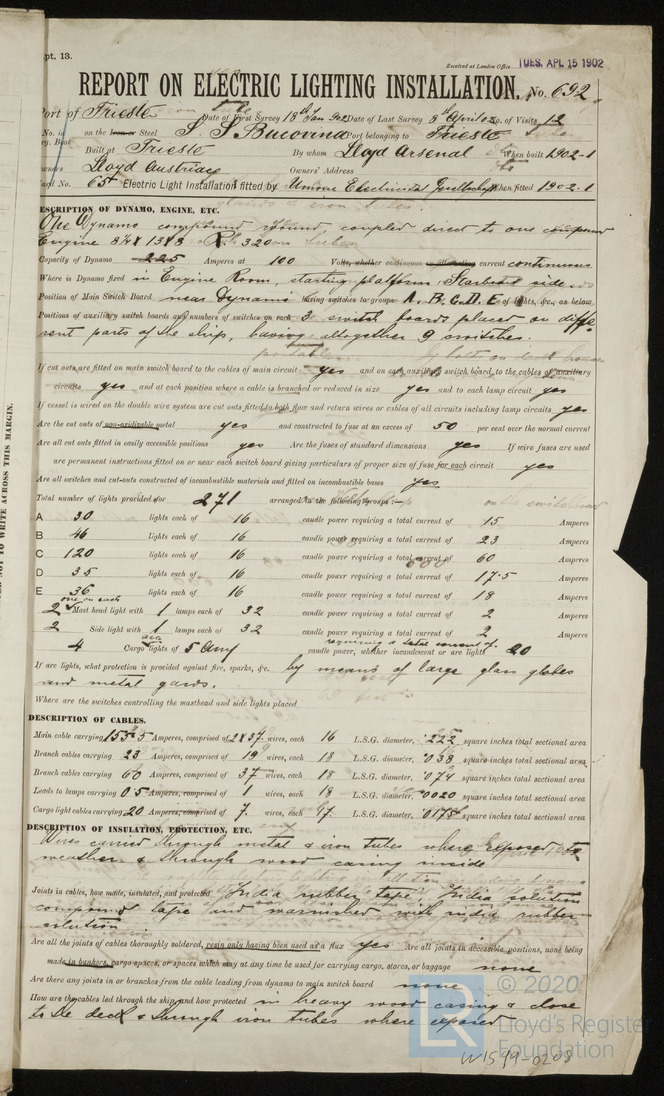 pt. 13.
Received at London Office TUES. APL 15 1902
REPORT ON ELECTRIC LIGHTING INSTALLATION. No. 692
Port of Trieste Date of First Survey 18th Jan 902 Date of Last Survey 8th April 02 No. of Visits 12
No. in on the Iron or Steel S. S Bucovina Port belonging to Trieste
Reg. Book Built at Trieste By whom Lloyd Arsenal When built 1902-1
Owners Lloyd Austriaco Owners' Address
Card No. 65 Electric Light Installation fitted by Unione Electricitäts Gesellschaft When fitted 1902-1
DESCRIPTION OF DYNAMO, ENGINE, ETC.
One Dynamo compound wound, coupled direct to one compound
Engine 8¼ & 13⅜ R. 320
Capacity of Dynamo 225 Amperes at 100 Volts, whether continuous or alternating current continuous
Where is Dynamo fixed in Engine Room, starting platform, Starboard side
Position of Main Switch Board near Dynamo having switches to groups A. B. C. D. E of lights, &c., as below
Positions of auxiliary switch boards and numbers of switches on each 3 switch boards placed on diffe
rent parts of the ship, having altogether 9 switches.
If cut outs are fitted on main switch board to the cables of main circuit yes and on each auxiliary switch board to the cables of auxiliary
circuits yes and at each position where a cable is branched or reduced in size yes and to each lamp circuit yes
If vessel is wired on the double wire system are cut outs fitted to both flow and return wires or cables of all circuits including lamp circuits yes
Are the cut outs of non-oxidizable metal yes and constructed to fuse at an excess of 50 per cent over the normal current
Are all cut outs fitted in easily accessible positions yes Are the fuses of standard dimensions yes If wire fuses are used
are permanent instructions fitted on or near each switch board giving particulars of proper size of fuse for each circuit yes
Are all switches and cut-outs constructed of incombustible materials and fitted on incombustible bases yes
Total number of lights provided for 271 arranged in the following groups:—
A 30 lights each of 16 candle power requiring a total current of 15 Amperes
B 46 lights each of 16 candle power requiring a total current of 23 Amperes
C 120 lights each of 16 candle power requiring a total current of 60 Amperes
D 35 lights each of 16 candle power requiring a total current of 17.5 Amperes
E 36 lights each of 16 candle power requiring a total current of 18 Amperes
2 one on each Mast head light with 1 lamps each of 32 candle power requiring a total current of 2 Amperes
2 Side light with 1 lamps each of 32 candle power requiring a total current of 2 Amperes
4 Cargo arc lights of 5 Amp candle power, whether incandescent or arc lights requiring a total current of 20
If arc lights, what protection is provided against fire, sparks, &c. by means of large glass globes
and metal gards.
Where are the switches controlling the masthead and side lights placed
DESCRIPTION OF CABLES.
Main cable carrying 155.5 Amperes, comprised of 2 & 37 wires, each 16 L.S.G. diameter, .222 square inches total sectional area
Branch cables carrying 23 Amperes, comprised of 19 wires, each 18 L.S.G. diameter, .038 square inches total sectional area
Branch cables carrying 60 Amperes, comprised of 37 wires, each 18 L.S.G. diameter, .074 square inches total sectional area
Leads to lamps carrying 0.5 Amperes, comprised of 1 wires, each 18 L.S.G. diameter, .0020 square inches total sectional area
Cargo light cables carrying 20 Amperes, comprised of 7. wires, each 17. L.S.G. diameter, .0178 square inches total sectional area
DESCRIPTION OF INSULATION, PROTECTION, ETC.
Wires carried through metal & iron tubes where exposed to
weather & through wood casing inside
Joints in cables, how made, insulated, and protected India rubber tape, India solution
compound tape and warnished with india rubber
solution
Are all the joints of cables thoroughly soldered, resin only having been used as a flux yes Are all joints in accessible positions, none being
made in bunkers, cargo spaces, or spaces which may at any time be used for carrying cargo, stores, or baggage none
Are there any joints in or branches from the cable leading from dynamo to main switch board none
How are the cables led through the ship and how protected in heavy wood casing & close
to the deck & through iron tubes where exposed
NOT TO WRITE ACROSS THIS MARGIN.
LR
© 2020
Lloyd's Register
Foundation
W1599-0208